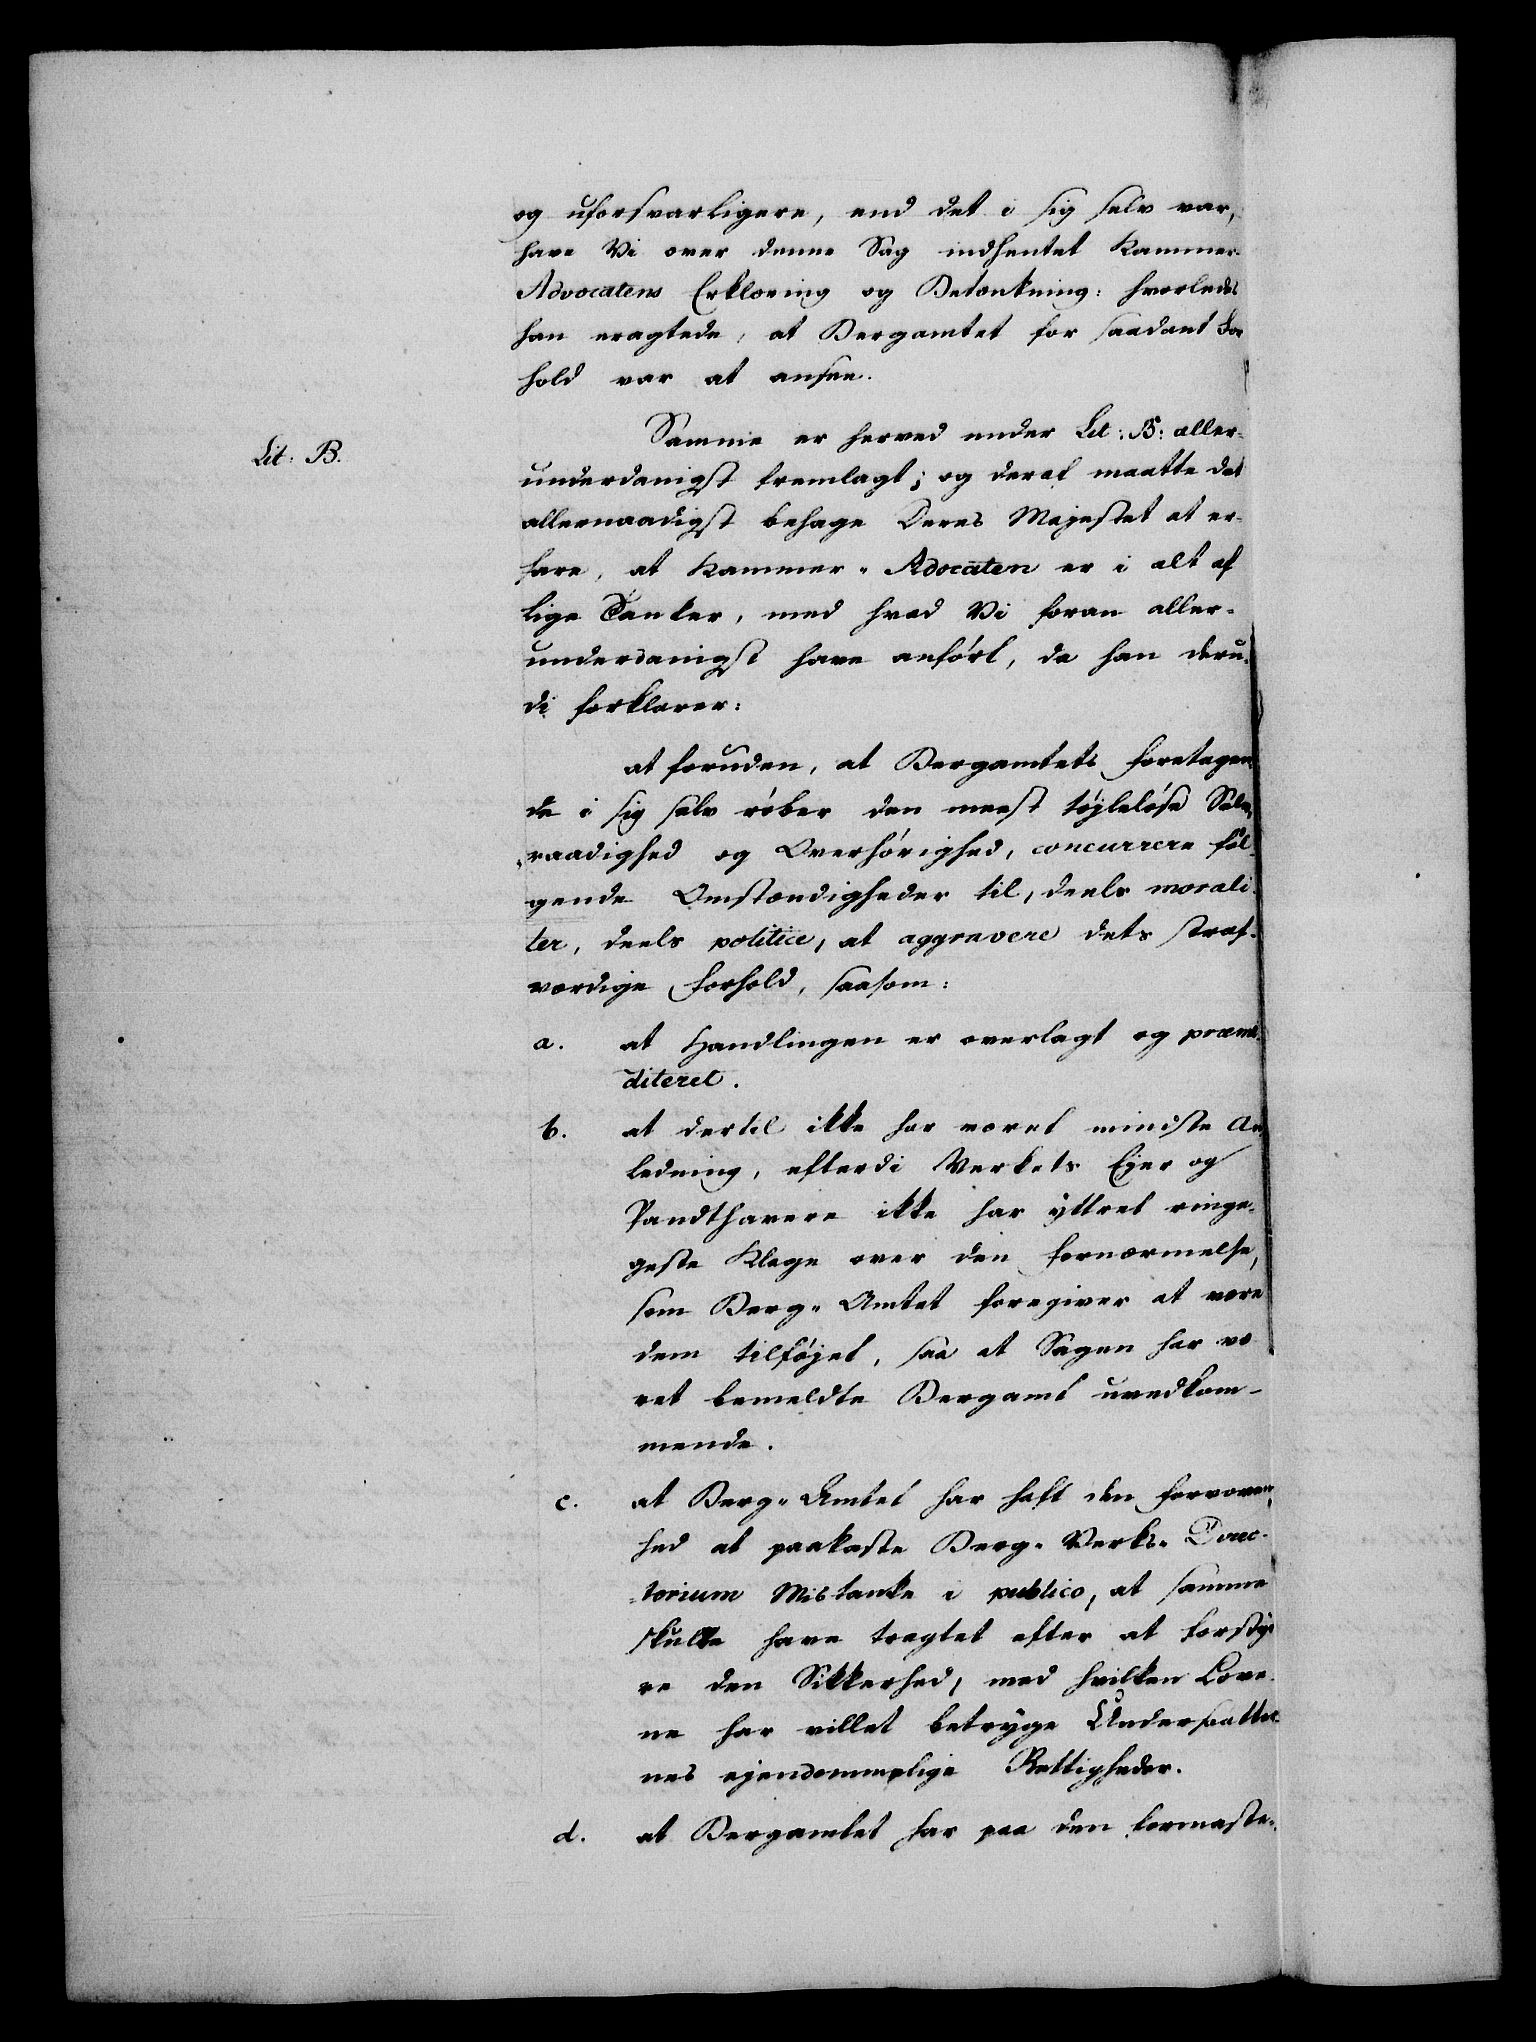 og uforsvarligere, end det i sig selv var,
have Vi over denne Sag indhentet Kammer-
Advocatens Erklæring og Betænkning: hvorledes
han eragtede, at Bergamtet for saadant For
hold var at ansee.
Samme er herved under Lit: B: aller-
Lit: B.
underdanigst fremlagt; og deraf maatte det
allernaadigst behage Deres Majestet at er-
fare, at Kammer-Advocaten er i alt af
lige Tanker, med hvad Vi foran aller-
underdanigst have anført, da han deru-
di forklarer:
at foruden, at Bergamtets foretagen-
de i sig selv røber den meest tøjleløse Selv-
raadighed og Overhørighed, concurrere føl-
gende Omstændigheder til, deels morali-
ter, deels politice, at aggravere dets straf-
værdige Forhold, saasom:
a. at Handlingen er overlagt og præme-
diteret.
b. at dertil ikke har været mindste An-
ledning, efterdi Verkets Ejer og
Pandthavere ikke har yttret ringe-
geste Klage over den Fornærmelse,
som Berg-Amtet foregiver at være
dem tilføjet, saa at Sagen har væ
ret bemeldte Bergamt uvedkom-
mende.
c. at Berg-Amtet har haft den Forvoven-
hed at paakaste Berg-Verks-Direc-
torium Mistanke i publico, at samme
skulle have tragtet efter at forstyr
re den Sikkerhed, med hvilken Love-
ne har villet betrygge Undersaatter-
nes ejendommelige Rettigheder.
d. at Bergamtet har paa den formaste-